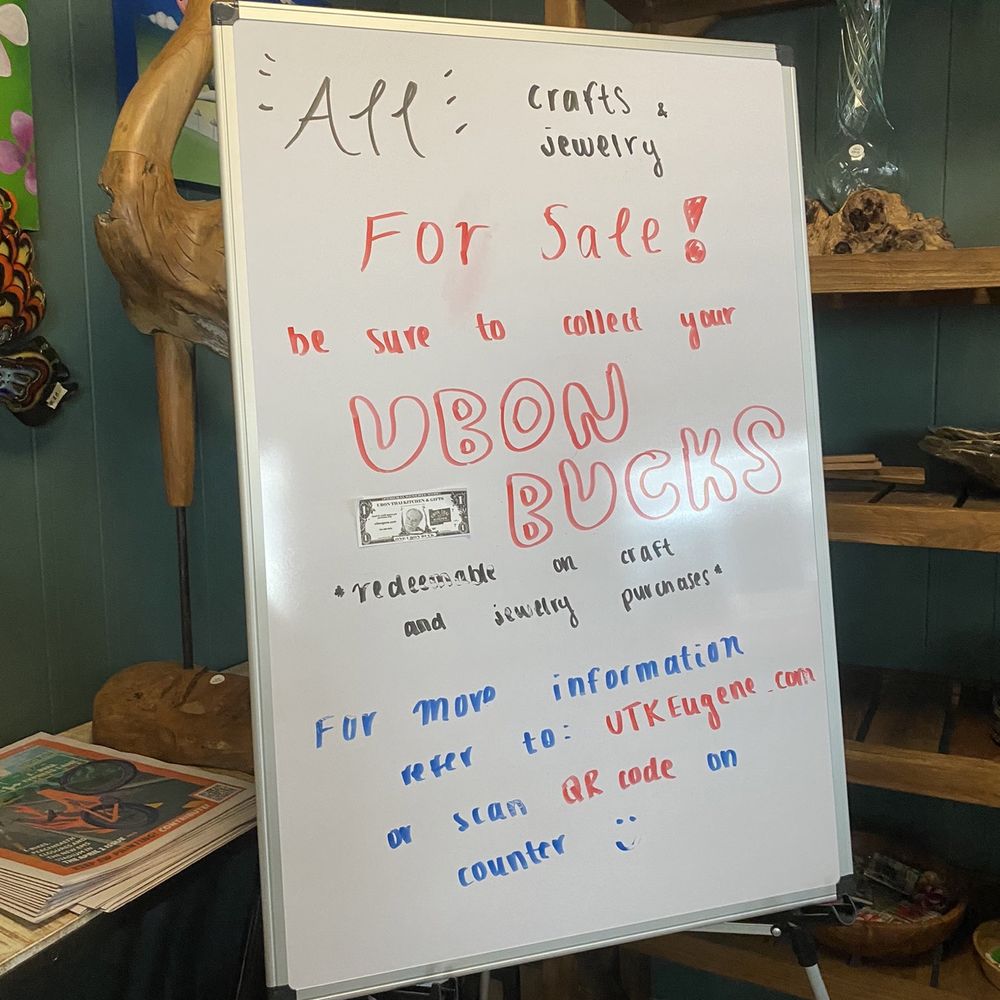 All crafts &
jewelry
For Sale!
be sure to collect your
UBON
BUCKS
UBON THAI KITCHEN & GIFTS
ONE UBON BUCK
*redeemable on craft
and jewelry purchases*
For more information
refer to: UTKEugene.com
or scan QR code on
counter